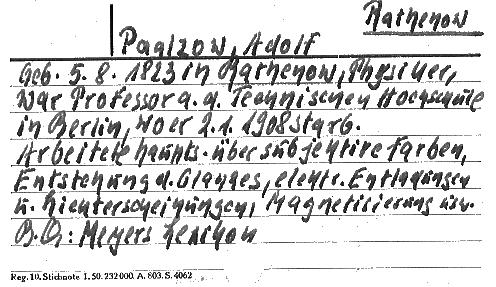 Rathenow
Paalzow, Adolf
Geb. 5. 8. 1823 in Rathenow, Physiker,
war Professor a. d. Technischen Hochschule
in Berlin, wo er 2. 1. 1908 starb.
Arbeitete haupts. über subjektive Farben,
Entstehung d. Glanzes, elektr. Entladungen
u. Lichterscheinungen, Magnetisierung usw.
B. Q.: Meyers Lexikon
Reg. 10. Stichnote 1. 50. 232000. A. 803. S. 4062